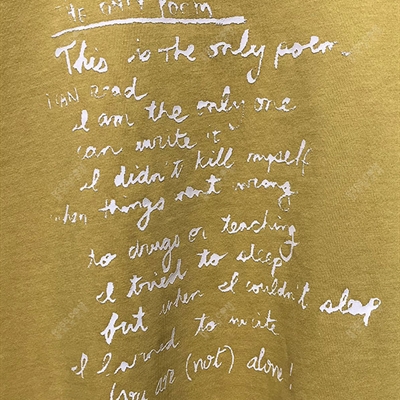 THE ONLY POEM
This is the only poem
I CAN read
I am the only one
can write it
I didn't kill myself
when things went wrong
to drugs or teaching
I tried to sleep
but when I couldn't sleep
I learned to write
(you are (not) alone!